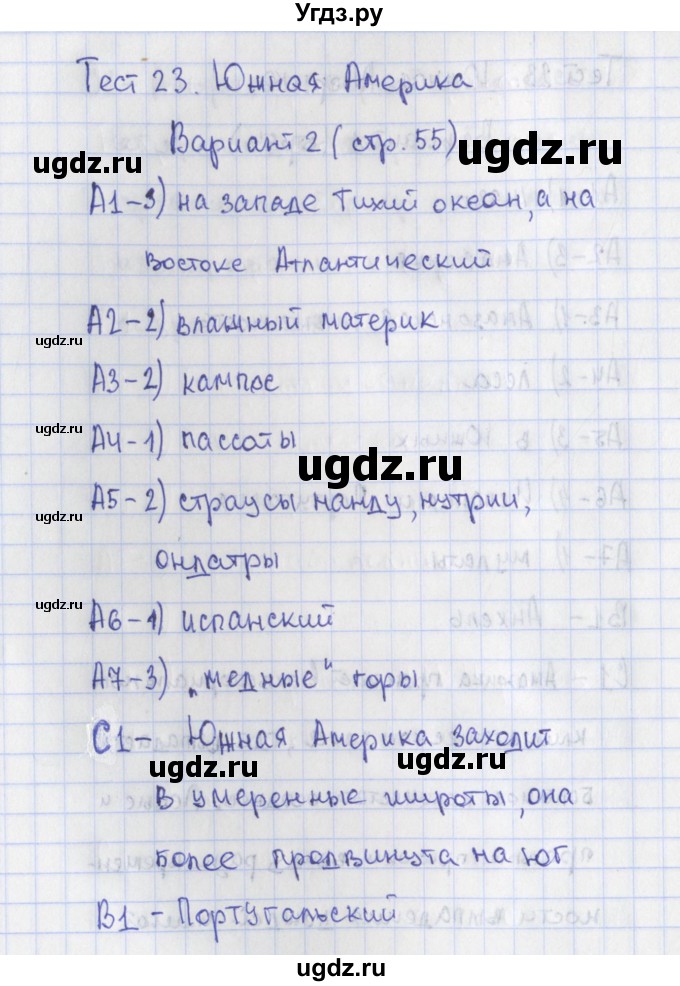 Угдз.ру
Тест 23. Южная Америка
Вариант 2 ( стр. 55)
ugdz.ru
ugdz.ru
А1-3) на западе Тихий океан, а на
востоке Атлантический
ugdz.ru
А2-2) влажный материк
ugdz.ru
ugdz.ru
А3-2) кампос
А4-1) пассаты
ugdz.ru
А5-2) страусы нанду, нутрии,
ugdz.ru
ондатры
ugdz.ru
А6-1) испанский
А7-3) „медные" горы
ugdz.ru
С1- Южная Америка заходит
ugdz.ru
ugdz.ru
в умеренные широты, она
более продвинута на юг
ugdz.ru
В1 - Португальский
ugdz.ru